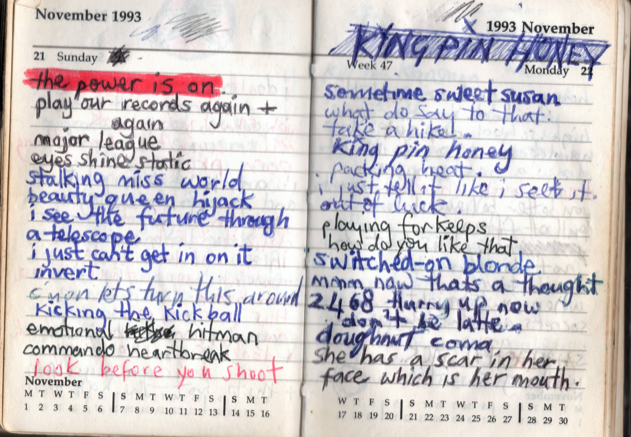 November 1993
21 Sunday
the power is on.
play our records again +
again
major league
eyes shine static
stalking miss world
beauty queen hijack
i see the future through
a telescope
i just can't get in on it
invert.
c'mon lets turn this around
kicking the kickball
emotional hitman
commando heartbreak
look before you shoot
November
M T W T F S S M T W T F S S M T
1 2 3 4 5 6 7 8 9 10 11 12 13 14 15 16
1993 November
KING PIN HONEY
Week 47
Monday 22
sometime sweet susan
what do say to that.
take a hike.
King pin honey
packing heat.
i just tell it like i seet it.
out of luck.
playing for keeps
how do you like that
switched-on blonde
mmm now thats a thought
2468 Hurry up now
don't be latte.
doughnut coma
she has a scar in her
face which is her mouth.
W T F S S M T W T F S S M T
17 18 19 20 21 22 23 24 25 26 27 28 29 30